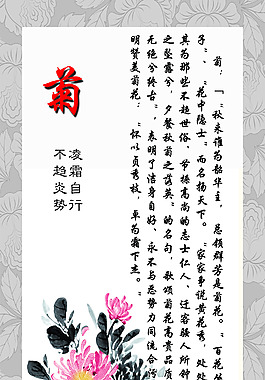 菊
凌霜自行
不趋炎势
菊：「"秋来谁为韶华主，总领群芳是菊花。"百花
子"、"花中隐士"而名扬天下。"家家争说黄花秀，处处
其为那些不趋世俗、节操高尚的志士仁人、迁客骚人所钟
之坠露兮，夕餐秋菊之落英"的名句，歌颂菊花高贵品质
无绝兮终古"，表明了洁身自好、永不与恶势力同流合污
明赞美菊花："怀以贞秀枝，卓为霜下杰。"